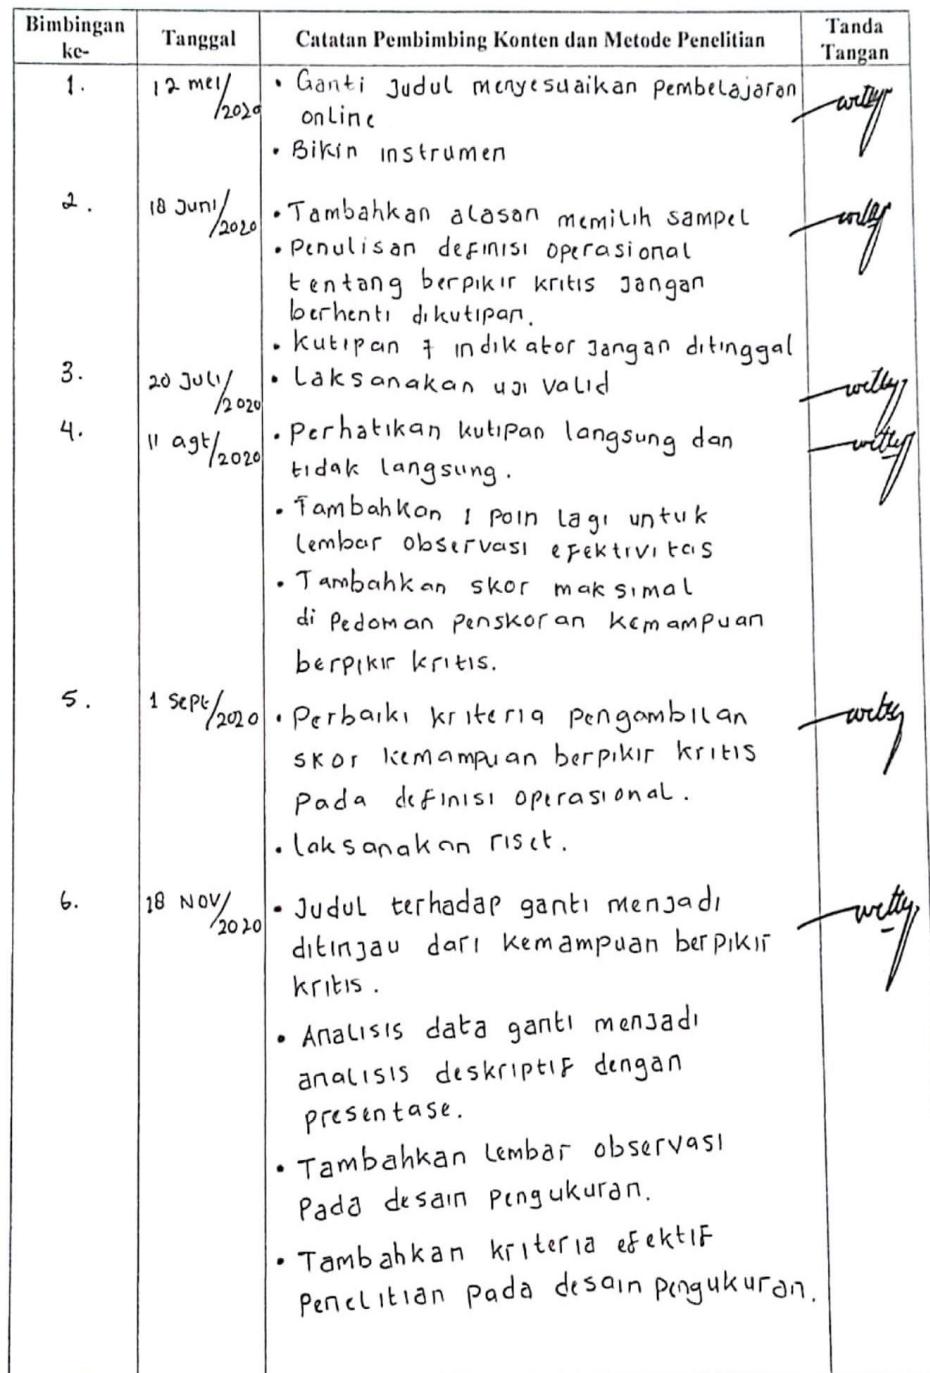 Bimbingan ke- Tanggal Catatan Pembimbing Konten dan Metode Penelitian Tanda Tangan
1. 12 mei/2020 • Ganti Judul menyesuaikan pembelajaran
online
• Bikin instrumen
2. 18 Juni/2020 • Tambahkan alasan memilih sampel
• Penulisan definisi operasional
tentang berpikir kritis Jangan
berhenti dikutipan.
• kutipan 7 indikator Jangan ditinggal
3. 20 Juli/2020 • Laksanakan uji valid
4. 11 agt/2020 • Perhatikan kutipan langsung dan
tidak langsung.
• Tambahkan 1 poin lagi untuk
lembar observasi efektivitas
• Tambahkan skor maksimal
di Pedoman penskoran kemampuan
berpikir kritis.
5. 1 Sept/2020 • Perbaiki kriteria pengambilan
skor kemampuan berpikir kritis
pada definisi operasional.
• laksanakan riset.
6. 18 NOV/2020 • Judul terhadap ganti menjadi
ditinjau dari kemampuan berpikir
kritis.
• Analisis data ganti menjadi
analisis deskriptif dengan
presentase.
• Tambahkan Lembar observasi
Pada desain pengukuran.
• Tambahkan kriteria efektif
Penelitian pada desain pengukuran.